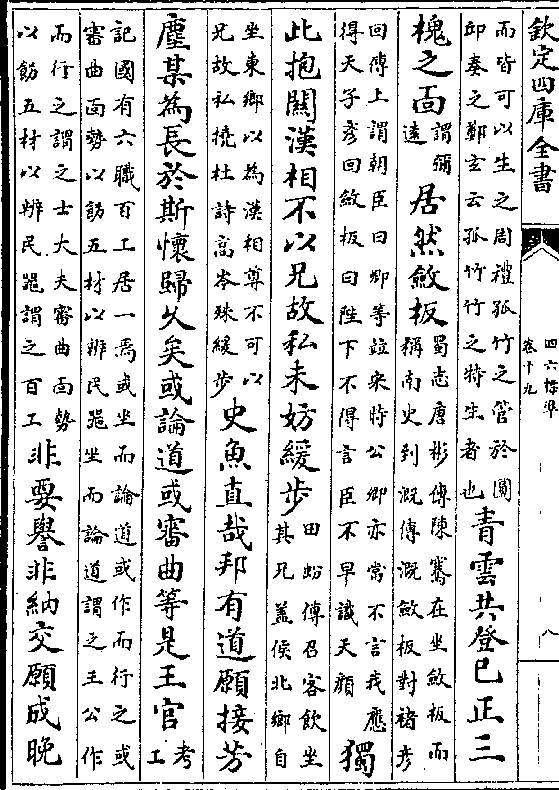 欽定四庫全書
四六標準
卷十九
八
而皆可以生之周禮孤竹之管於圜
邱奏之鄭玄云孤竹竹之特生者也
青雲共登已正三
槐之面
謂彌
遠
居然斂板
蜀志唐彬傳陳騫在坐斂板而
稱南史到溉傳溉斂板對褚彥
回傳上謂朝臣曰卿等並宋時公卿亦當不言我應
得天子彥回斂板曰陛下不得言臣不早識天顏
獨
此抱關漢相不以兄故私未妨緩步
田蚡傳召客飲坐
其兄蓋侯北鄉自
坐東鄉以為漢相尊不可以
兄故私撓杜詩高岑殊緩步
史魚直哉邦有道願接芳
塵某為長於斯懷歸久矣或論道或審曲等是王官
考
工
記國有六職百工居一焉或坐而論道或作而行之或
審曲面勢以飭五材以辨民器坐而論道謂之王公作
而行之謂之士大夫審曲面勢
以飭五材以辨民器謂之百工
非要譽非納交願成晚